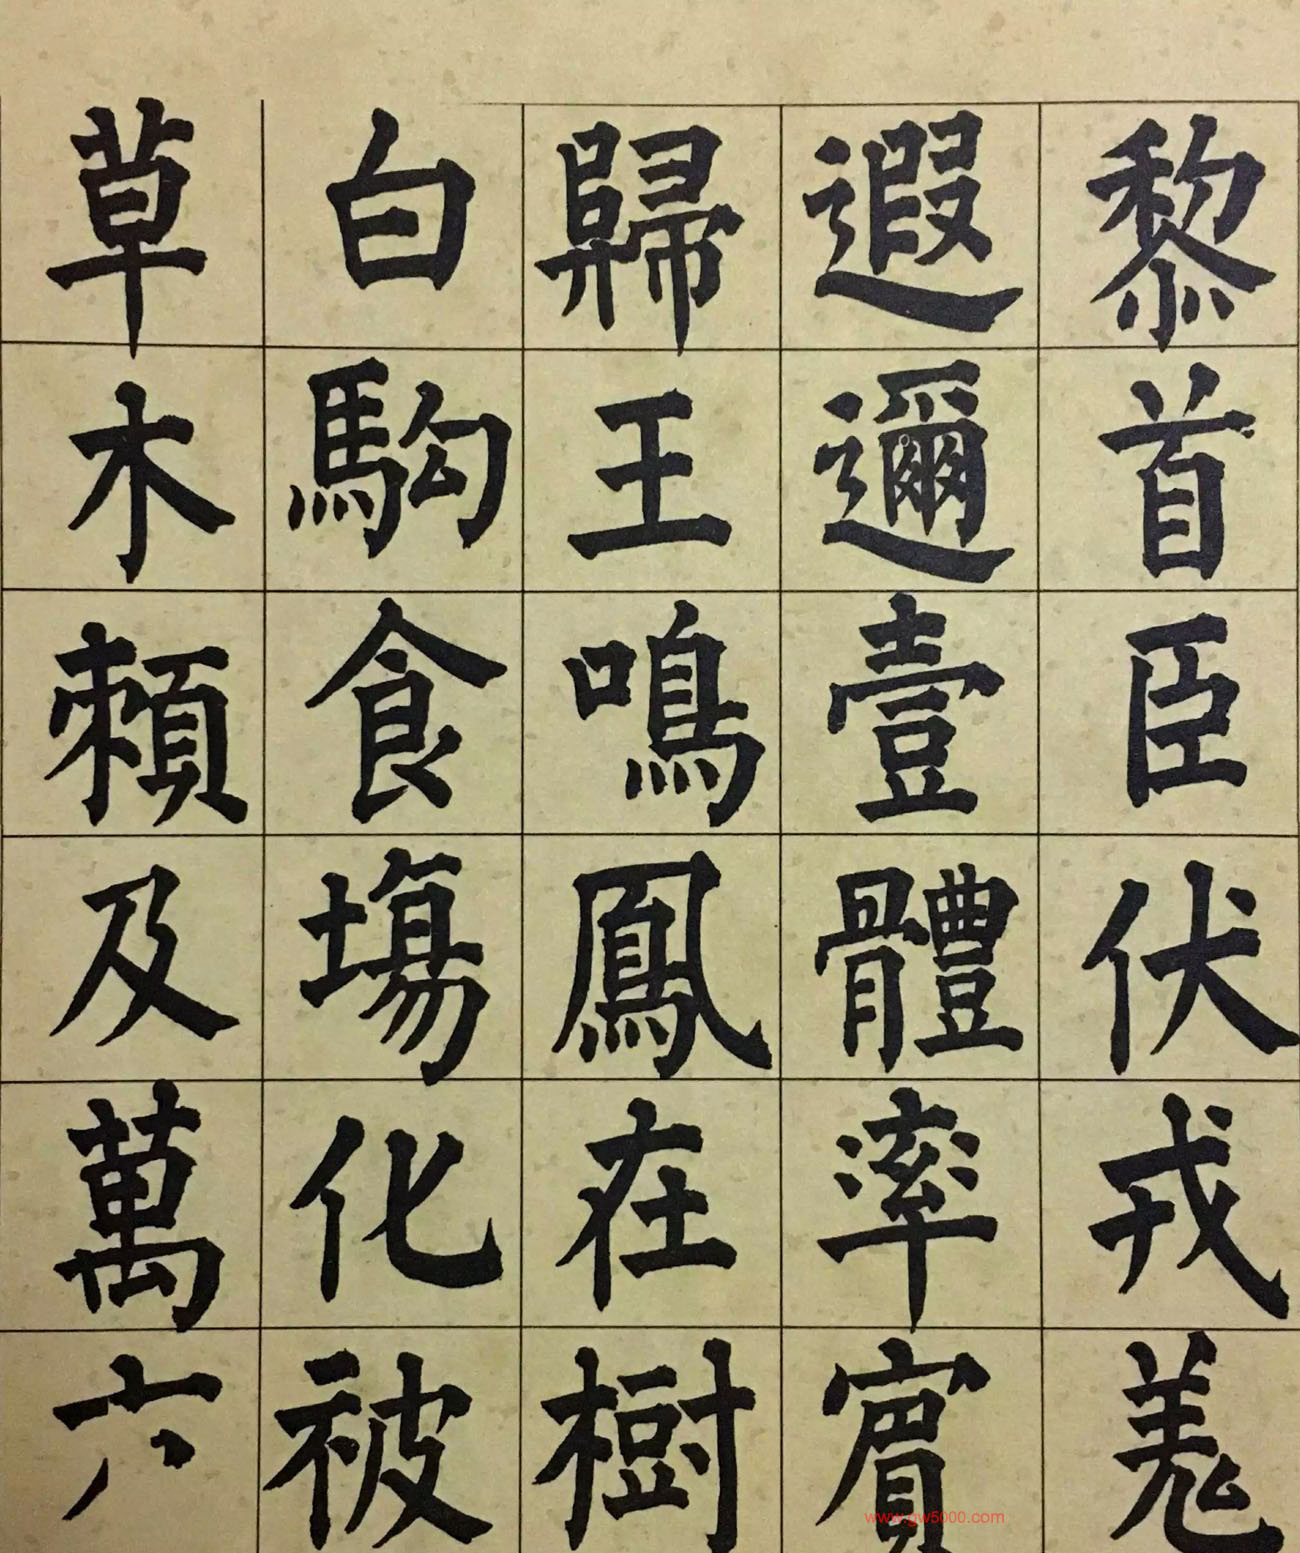 黎首臣伏戎羗
遐邇壹體率賓
歸王鳴鳳在樹
白駒食塲化被
草木賴及萬六
www.gw5000.com